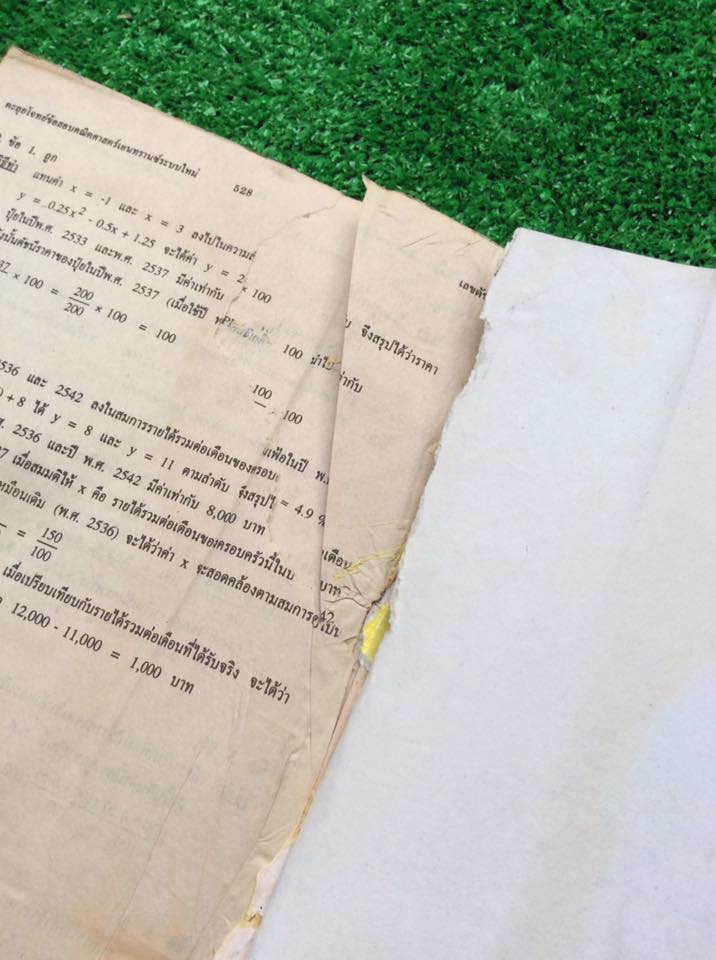 ตะลุยโจทย์ข้อสอบคณิตศาสตร์เอนทรานซ์ระบบใหม่ 528
ข้อ 1. ถูก
วิธีทำ แทนค่า x = -1 และ x = 3 ลงไปในความ
y = 0.25x² - 0.5x + 1.25 จะได้ค่า y = 2
ปุ๋ยในปีพ.ศ. 2533 และพ.ศ. 2537 มีค่าเท่ากับ
ดังนั้นดัชนีราคาของปุ๋ยในปีพ.ศ. 2537 (เมื่อใช้ปี
37 × 100 = 200/200 × 100 = 100
2536 และ 2542 ลงในสมการรายได้รวมต่อเดือนของครอบ
) + 8 ได้ y = 8 และ y = 11 ตามลำดับ จึงสรุป
. 2536 และปี พ.ศ. 2542 มีค่าเท่ากับ 8,000 บาท
37 เมื่อสมมติให้ x คือ รายได้รวมต่อเดือนของครอบครัวนี้ใน
เหมือนเดิม (พ.ศ. 2536) จะได้ว่าค่า x จะสอดคล้องตามสมการ
= 150/100
เมื่อเปรียบเทียบกับรายได้รวมต่อเดือนที่ได้รับจริง จะได้ว่า
12,000 - 11,000 = 1,000 บาท
× 100
100 นำไป
100
× 100
เฟ้อในปี พ.
= 4.9 %
เลขดัช
จึงสรุปได้ว่าราคา
ากับ
เดือน
บาท
42
เป็น